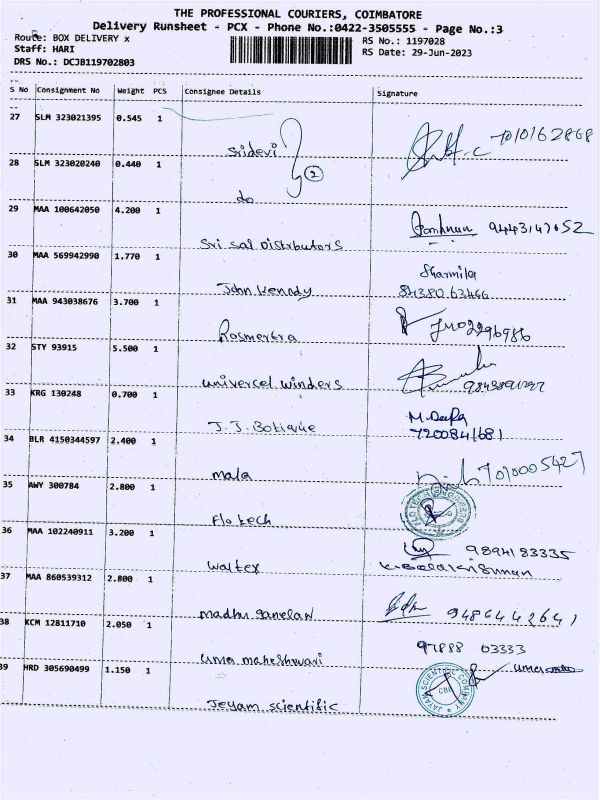 THE PROFESSIONAL COURIERS, COIMBATORE
Delivery Runsheet - PCX - Phone No.:0422-3505555 - Page No.:3
Route: BOX DELIVERY x RS No.: 1197028
Staff: HARI RS Date: 29-Jun-2023
DRS No.: DCJB119702803
S No Consignment No Weight PCS Consignee Details Signature
27 SLM 323021395 0.545 1
Sridevi
28 SLM 323020240 0.440 1
2
do
29 MAA 100642050 4.200 1
Sri sai Distributors
30 MAA 569942990 1.770 1 Sharmila
John Kenndy
31 MAA 943038676 3.700 1
Rosmertra
32 STY 93915 5.500 1
universel winders
33 KRG 130248 0.700 1
J.J. Botique 7200841681
34 BLR 4150344597 2.400 1
mala
35 AWY 300784 2.800 1
Flo tech
36 MAA 102240911 3.200 1 9894183335
waltex
37 MAA 860539312 2.800 1
madhu ganelan 9486442641
38 KCM 12811710 2.050 1 97888 03333
uma maheshwari
39 HRD 305690499 1.150 1
JAYAM SCIENTIFIC COMPANY CBE
Jeyam scientific